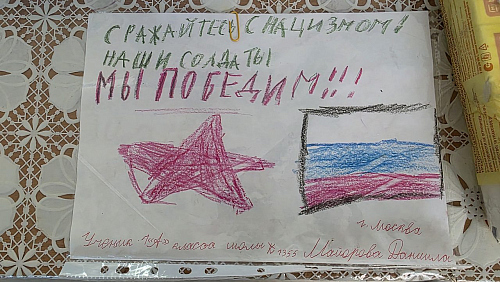 СРАЖАЙТЕСЬ С НАЦИЗМОМ!
НАШИ СОЛДАТЫ
МЫ ПОБЕДИМ!!!
г. Москва
Ученик 1 "А" класса школы № 1355 Майорова Даниила